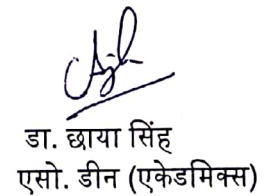 डा. छाया सिंह
एसो. डीन (एकेडमिक्स)